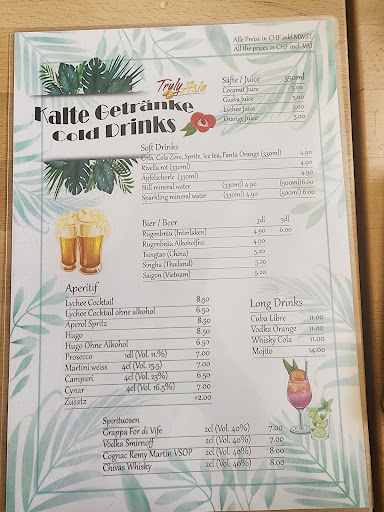 Alle Preise in CHF inkl MWST
All the prices in CHF incl. VAT
Truly Asia
Kalte Getränke
Cold Drinks
Säfte / Juice 350ml
Coconut Juice 5.00
Guava Juice 5.00
Lychee Juice 5.00
Orange Juice 5.00
Soft Drinks
Cola, Cola Zero, Sprite, Ice tea, Fanta Orange (330ml) 4.90
Rivella rot (330ml) 4.90
Apfelschorle (330ml) 4.90
Still mineral water (330ml) 4.90 (500ml)6.00
Sparkling mineral water (330ml) 4.90 (500ml) 6.00
Bier / Beer 3dl 5dl
Rugenbräu (Interlaken) 4.90 6.00
Rugenbräu Alkoholfrei 4.90
Tsingtao (China) 5.20
Singha (Thailand) 5.20
Saigon (Vietnam) 5.20
Aperitif
Lychee Cocktail 8.50
Lychee Cocktail ohne alkohol 6.50
Aperol Spritz 8.50
Hugo 8.50
Hugo Ohne Alkohol 6.50
Prosecco 1dl (Vol. 11.%) 7.00
Martini weiss 4cl (Vol. 15.5) 7.00
Campari 4cl (Vol. 23%) 7.00
Cynar 4cl (Vol. 16.5%) 7.00
Zusatz +2.00
Long Drinks
Cuba Libre 11.00
Vodka Orange 11.00
Whisky Cola 11.00
Mojito 14.00
Spirituosen
Grappa For di Vife 2cl (Vol. 40%) 7.00
Vodka Smirnoff 2cl (Vol. 40%) 7.00
Cognac Remy Martin VSOP 2cl (Vol. 40%) 8.00
Chivas Whisky 2cl (Vol. 40%) 8.00